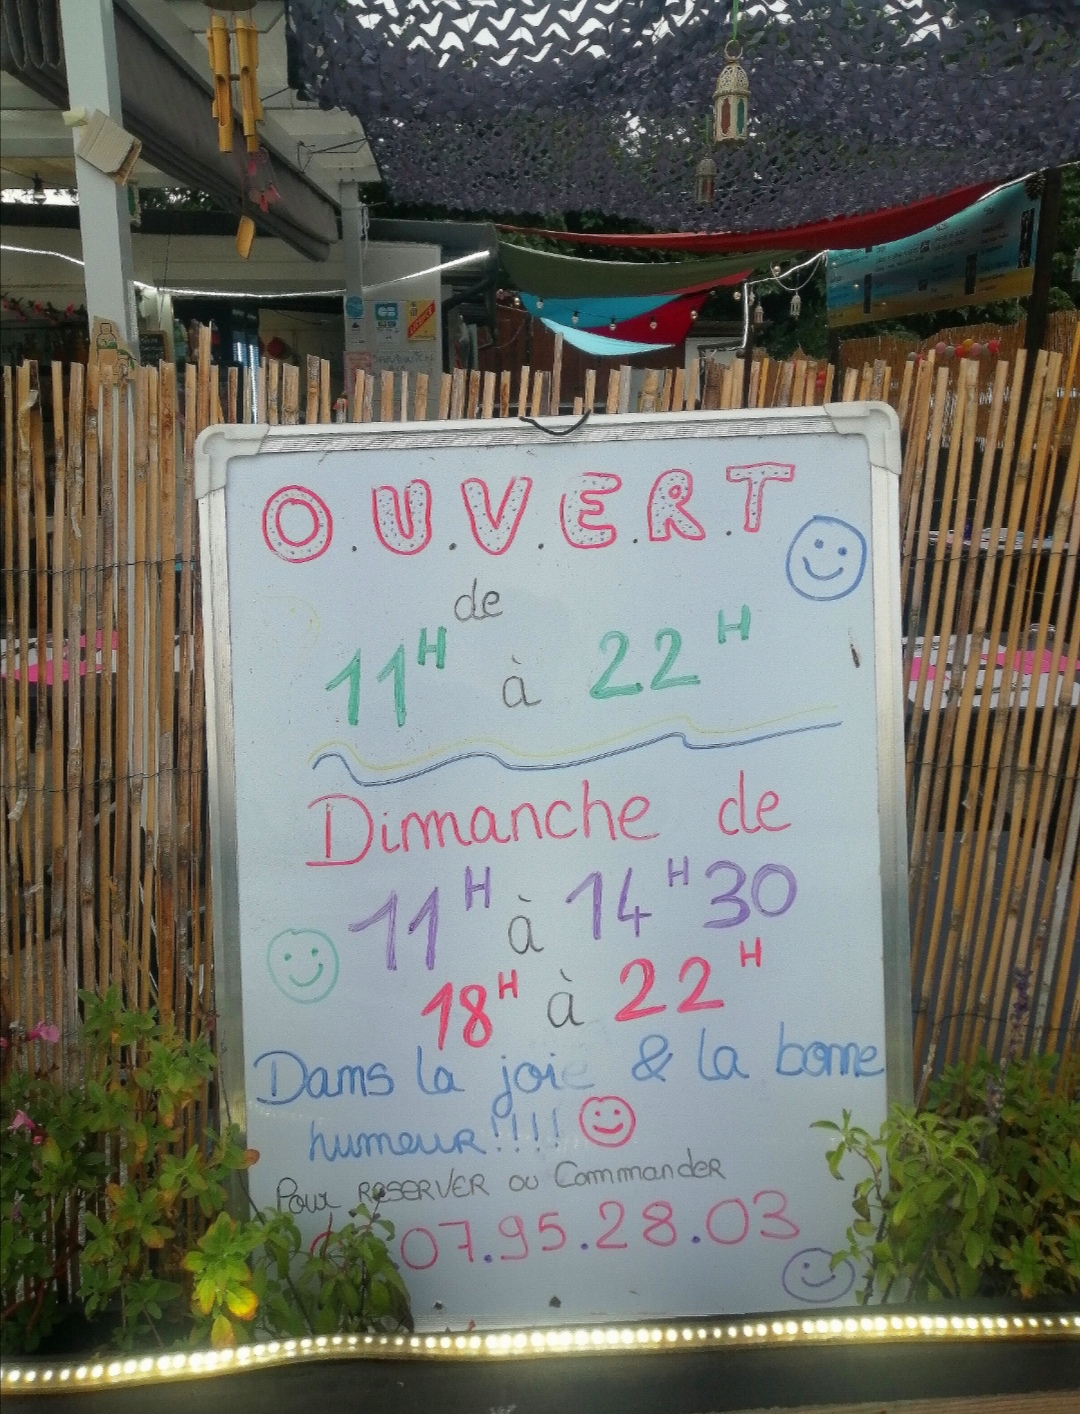 O.U.V.E.R.T
de
11H à 22H
Dimanche de
11H à 14H30
18H à 22H
Dans la joie & la bonne
humeur!!!!
Pour RESERVER ou Commander
.07.95.28.03